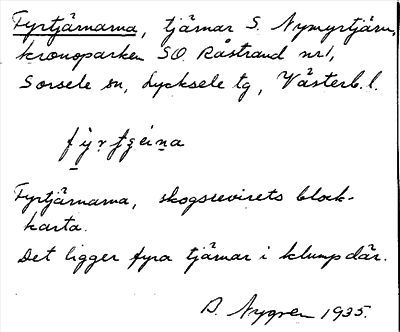 Fyrtjärnarna, tjärnar S. Nymyrtjärn,
kronoparken SO. Råstrand nr 1,
Sorsele sn, Lycksele tg, Västerb. l.
Fyrtjärnarna, skogsrevirets block-
karta.
Det ligger fyra tjärnar i klump där.
D. Nygren 1935.